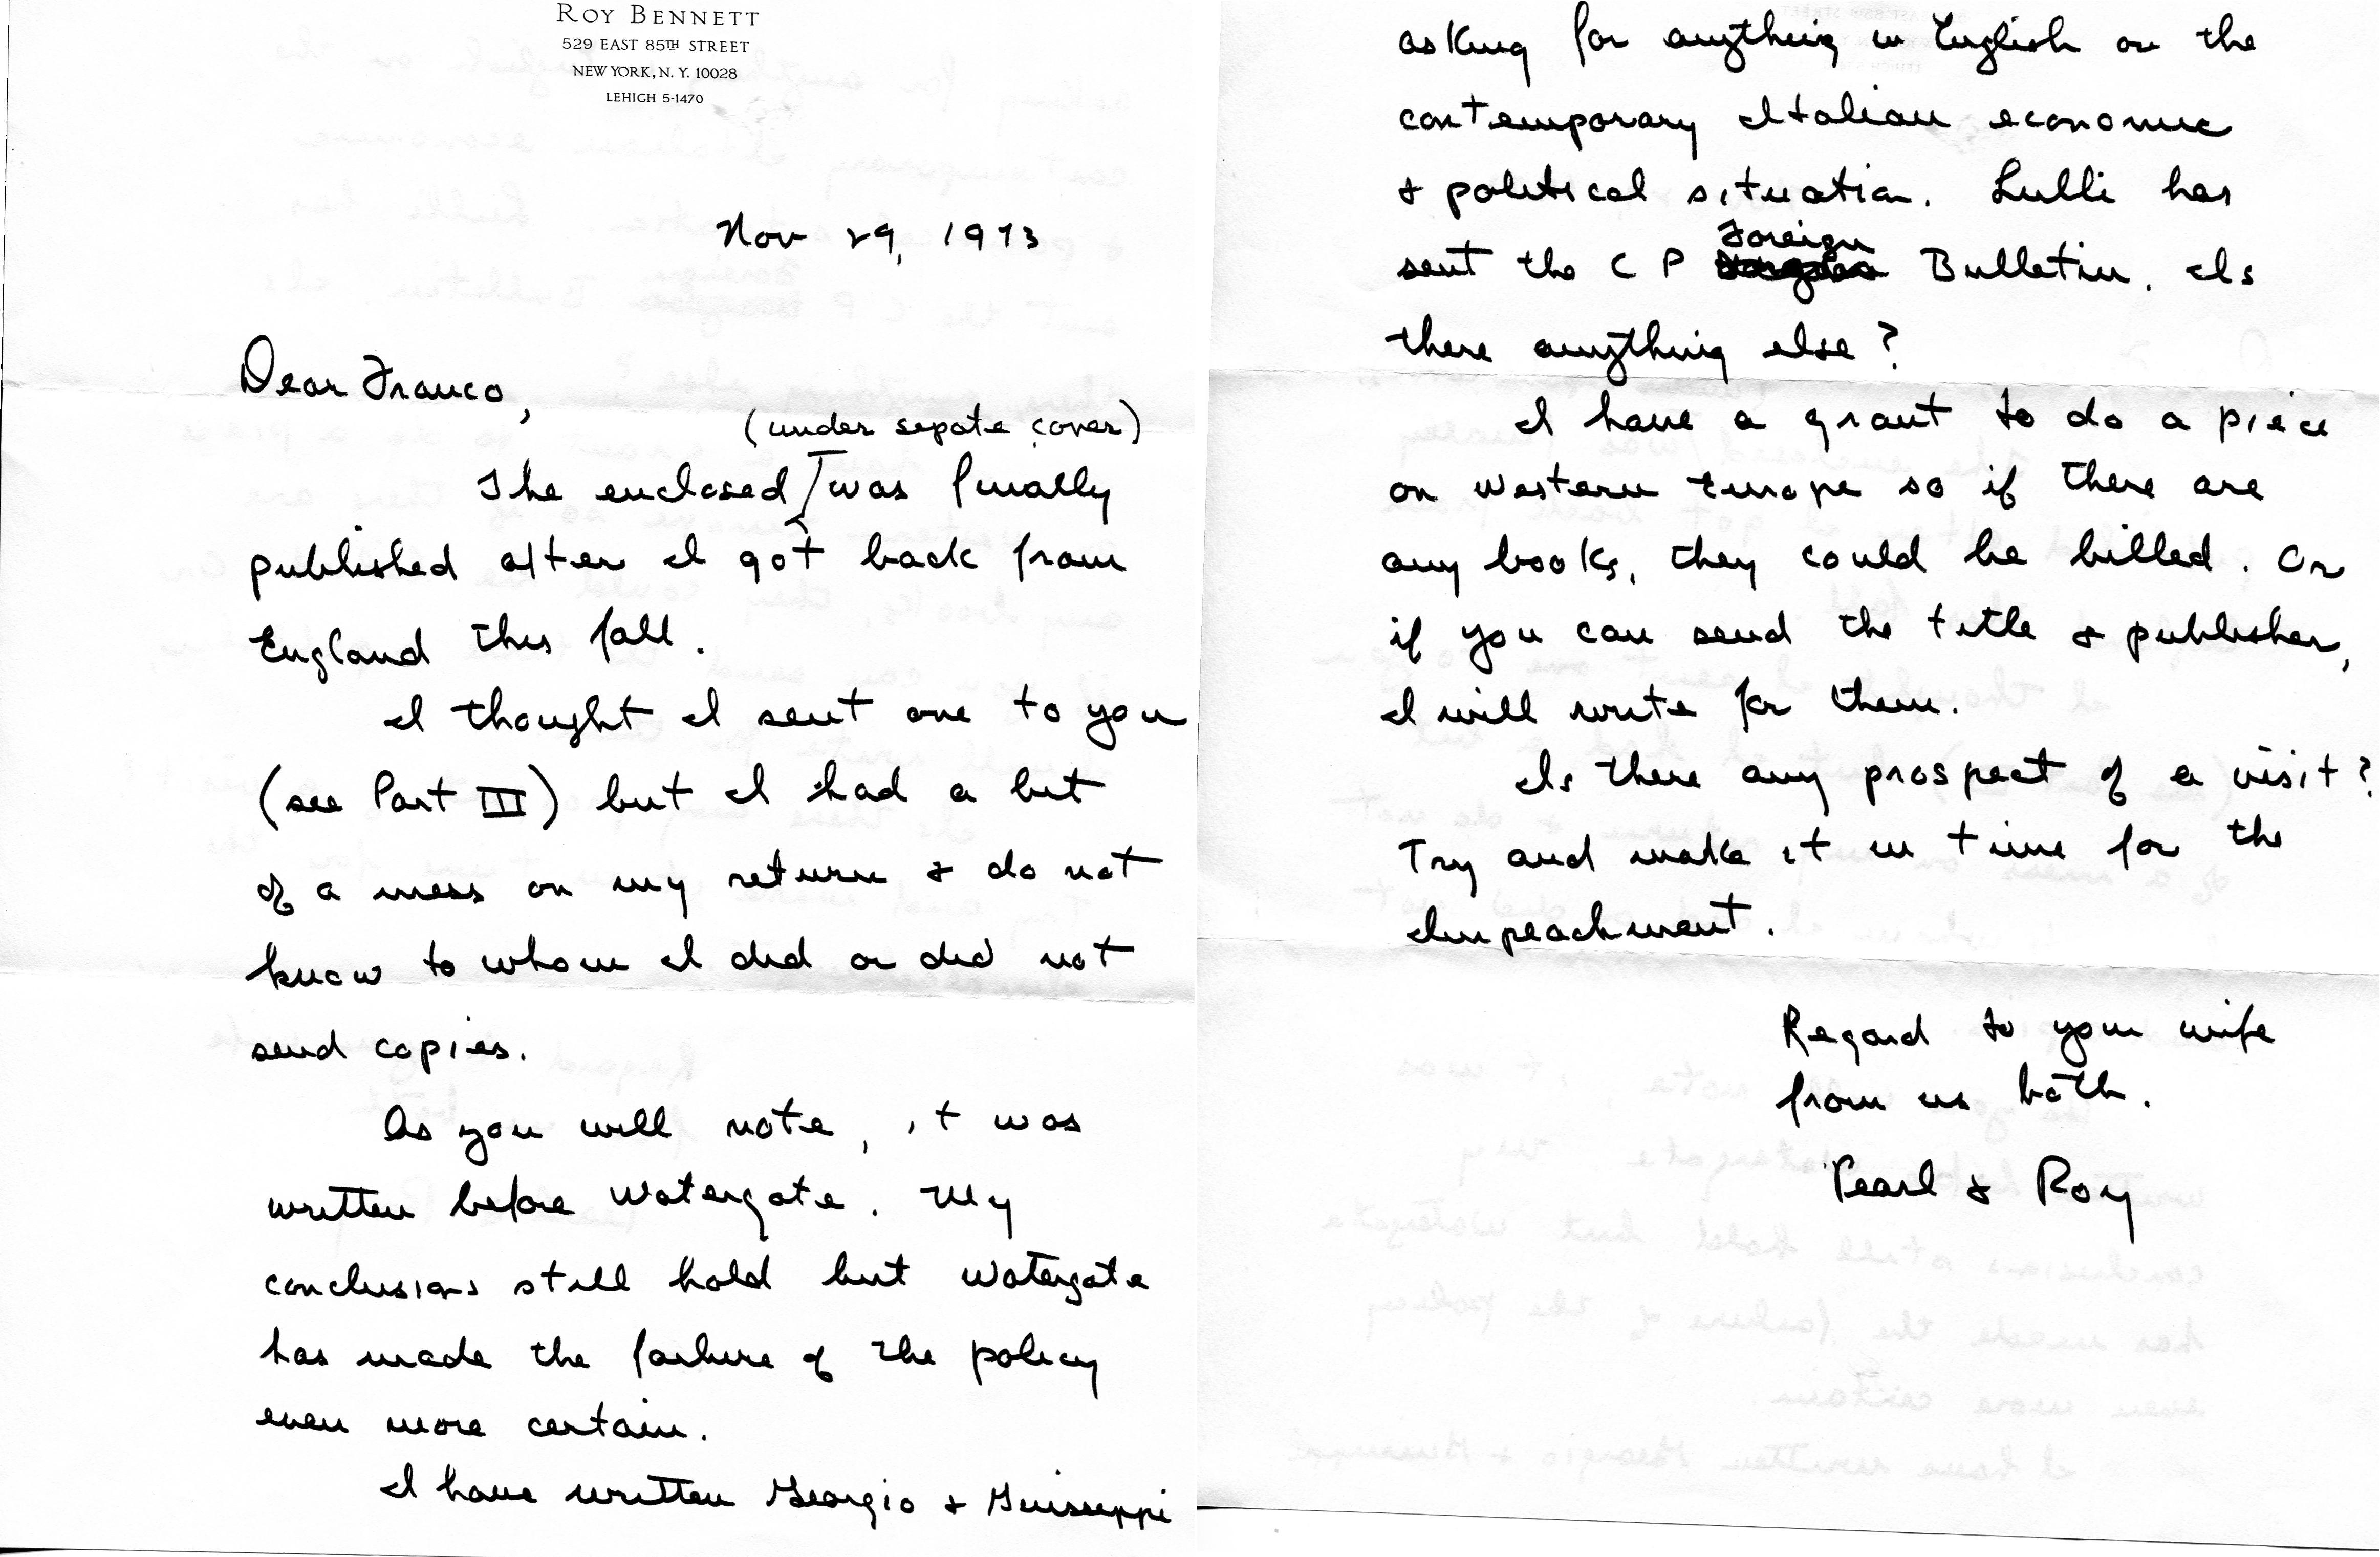 ROY BENNETT
529 EAST 85TH STREET
NEW YORK, N. Y. 10028
LEHIGH 5-1470
Nov 29, 1973
Dear Franco,
(under sepate cover)
The enclosed was finally
published after I got back from
England this fall.
I thought I sent one to you
(see Part III) but I had a bit
of a mess on my return & do not
know to whom I did or did not
send copies.
As you will note, it was
written before Watergate. My
conclusions still hold but Watergate
has made the failure of the policy
even more certain.
I have written Georgio & Guisseppi
asking for anything in English on the
contemporary Italian economic
& political situation. Lulli has
sent the C P Foreign Bulletin. Is
there anything else?
I have a grant to do a piece
on Western Europe so if there are
any books, they could be billed. Or
if you can send the title & publisher,
I will write for them.
Is there any prospect of a visit?
Try and make it in time for the
Impeachment.
Regard to your wife
from us both.
Pearl & Roy